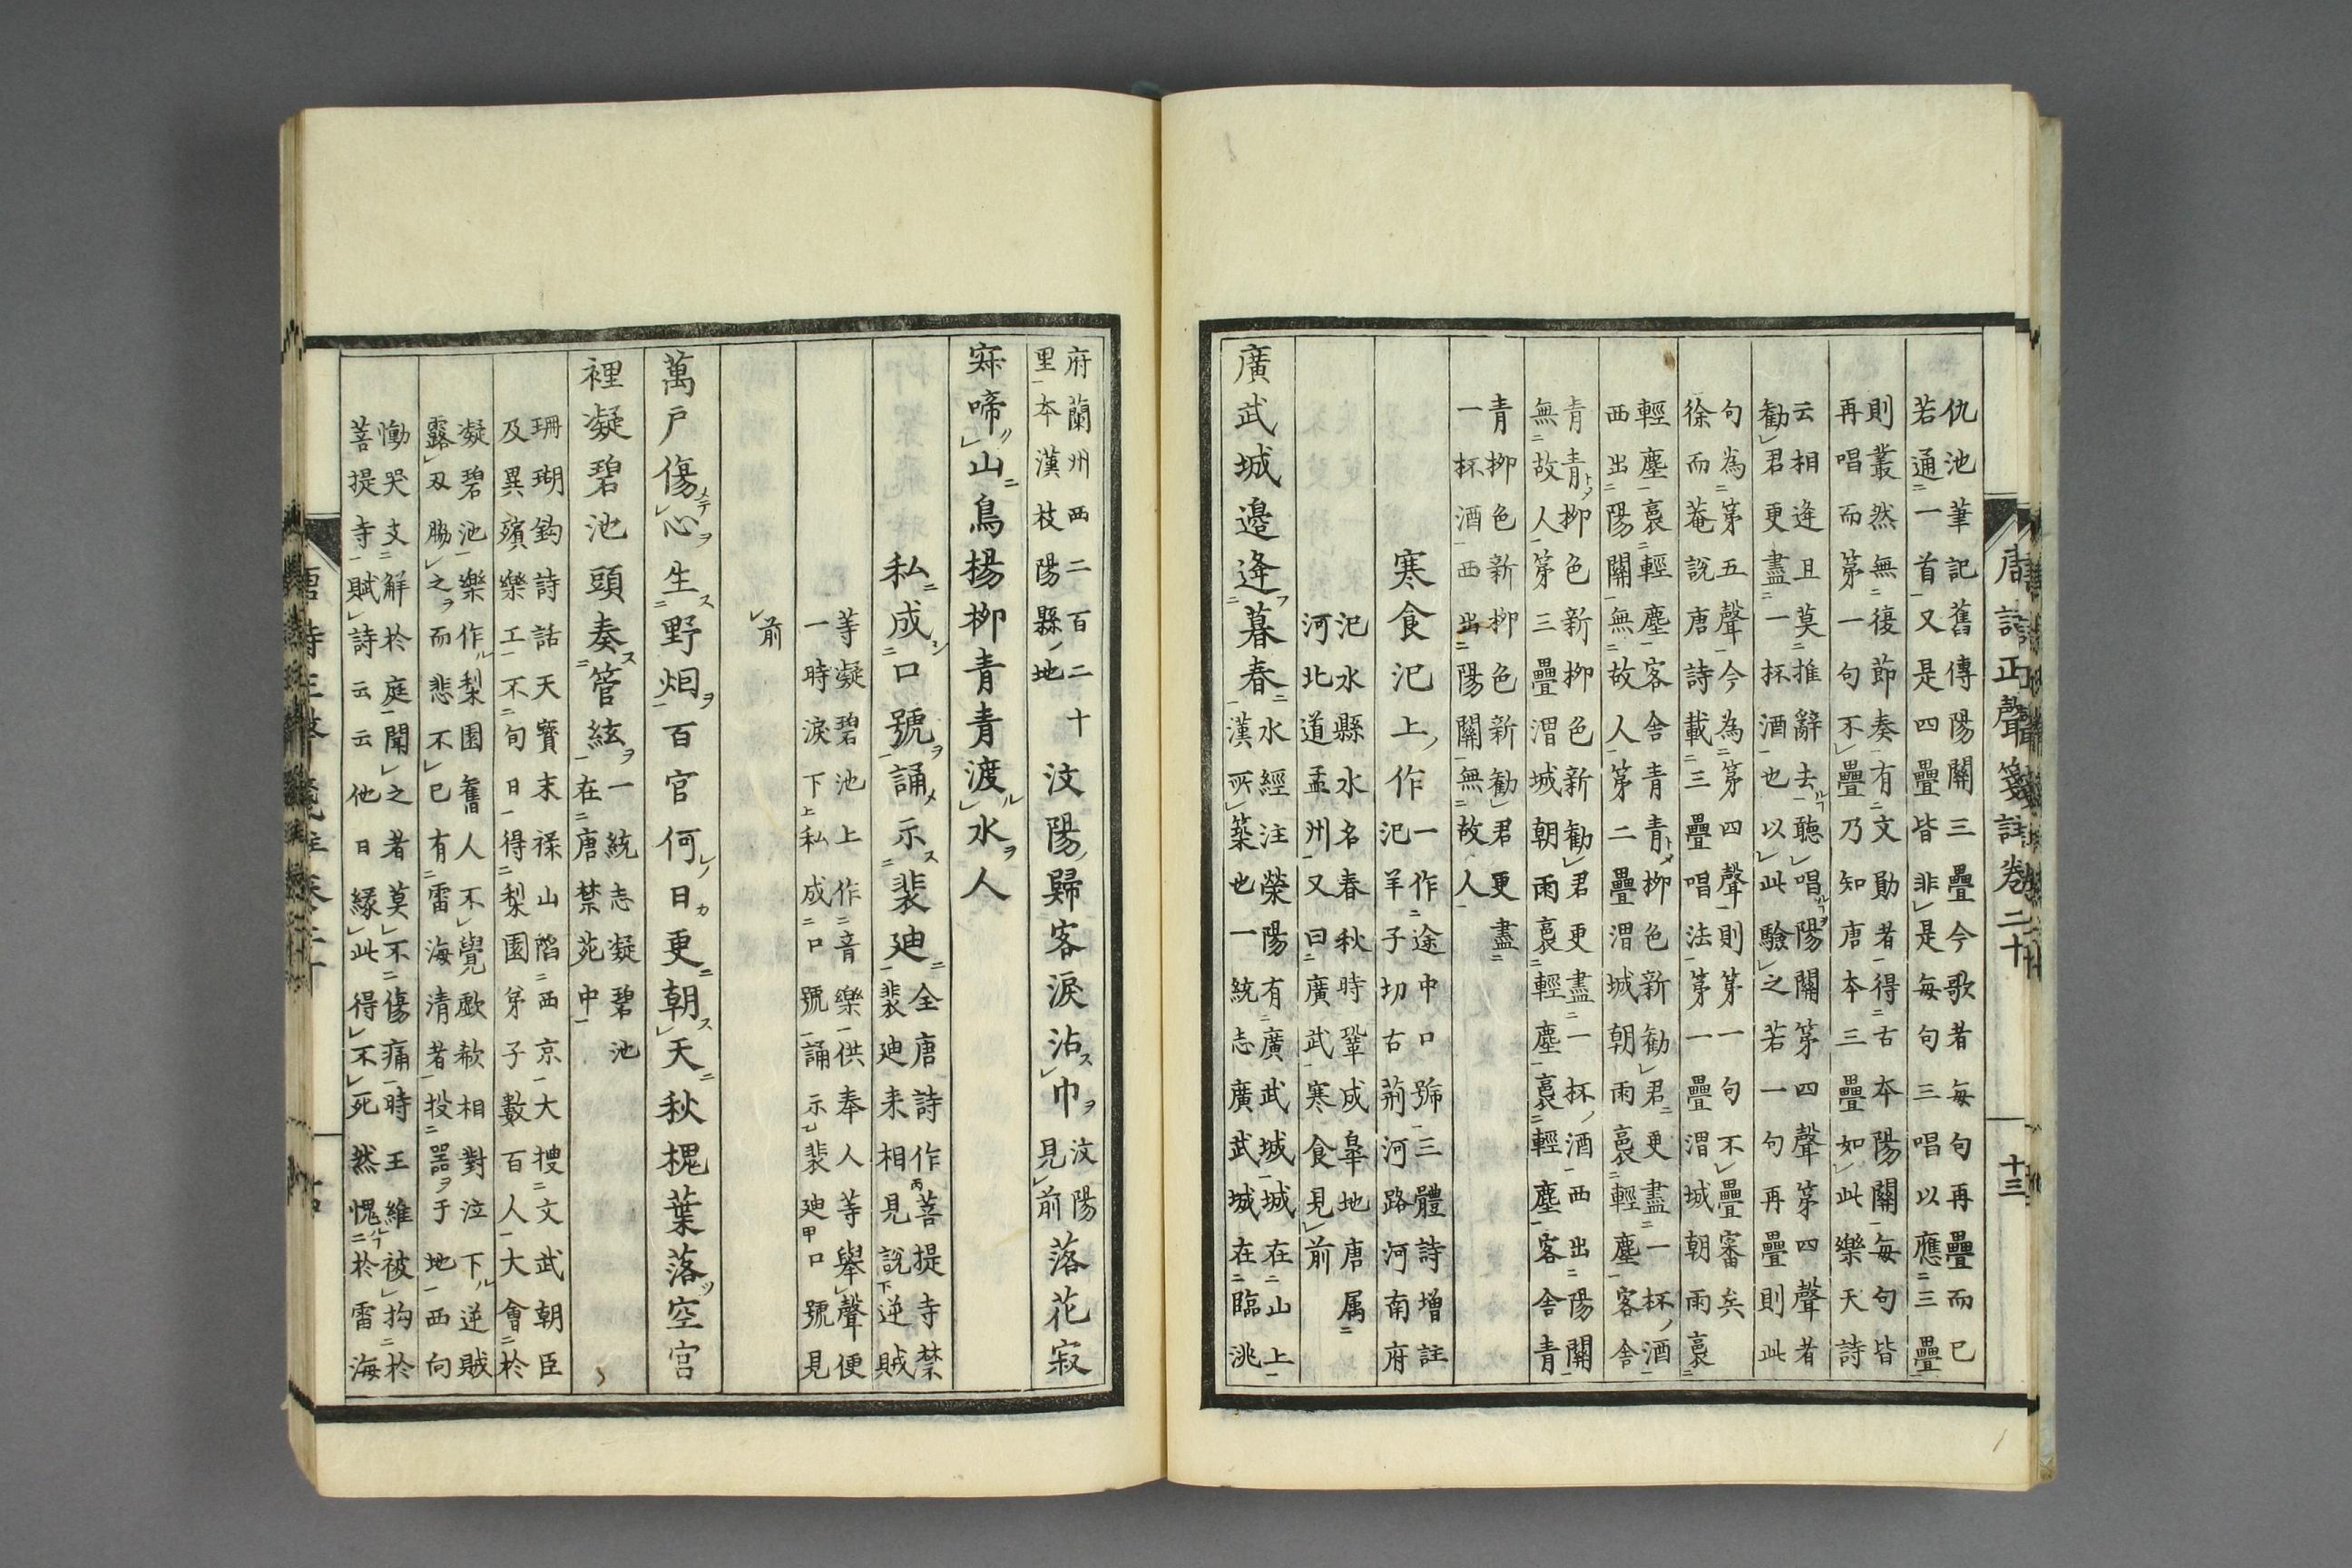 唐詩正聲箋註卷二十
十三
仇池筆記舊傳陽關三疊今歌者每句再疊而已
若通一首又是四疊皆非是每句三唱以應三疊
則叢然無復節奏有文勛者得古本陽關每句皆
再唱而第一句不疊乃知唐本三疊如此樂天詩
云相逢且莫推辭去聽唱陽關第四聲第四聲者
勸君更盡一杯酒也以此驗之若一句再疊則此
句為第五聲今為第四聲則第一句不疊審矣
徐而菴說唐詩載三疊唱法第一疊渭城朝雨裛
輕塵裛輕塵客舍青青柳色新勸君更盡一杯酒
西出陽關無故人第二疊渭城朝雨裛輕塵客舍
青青柳色新柳色新勸君更盡一杯酒西出陽關
無故人第三疊渭城朝雨裛輕塵裛輕塵客舍青
青柳色新柳色新勸君更盡
一杯酒西出陽關無故人
寒食汜上作
一作途中口號三體詩增註
汜羊子切古荊河路河南府
汜水縣水名春秋時鞏成皐地唐属
河北道孟州又曰廣武寒食見前
廣武城邊逢暮春
水經注榮陽有廣武城城在山上
漢所築也一統志廣武城在臨洮
府蘭州西二百二十
里本漢枝陽縣地
汶陽歸客淚沾巾
汶陽
見前
落花寂
寂啼山鳥楊柳青青渡水人
私成口號誦示裴迪
全唐詩作菩提寺禁
裴迪来相見說逆賊
等凝碧池上作音樂供奉人等舉聲便
一時淚下私成口號誦示裴迪口號見
前
萬戶傷心生野烟百官何日更朝天秋槐葉落空宮
裡凝碧池頭奏管絃
一統志凝碧池
在唐禁苑中
珊瑚鈎詩話天寶末祿山陷西京大搜文武朝臣
及異殯樂工不旬日得梨園弟子數百人大會於
凝碧池樂作梨園舊人不覺歔欷相對泣下逆賊
露刄脇之而悲不已有雷海清者投器于地西向
慟哭支解於庭聞之者莫不傷痛時王維被拘於
菩提寺賦詩云云他日緣此得不死然愧於雷海